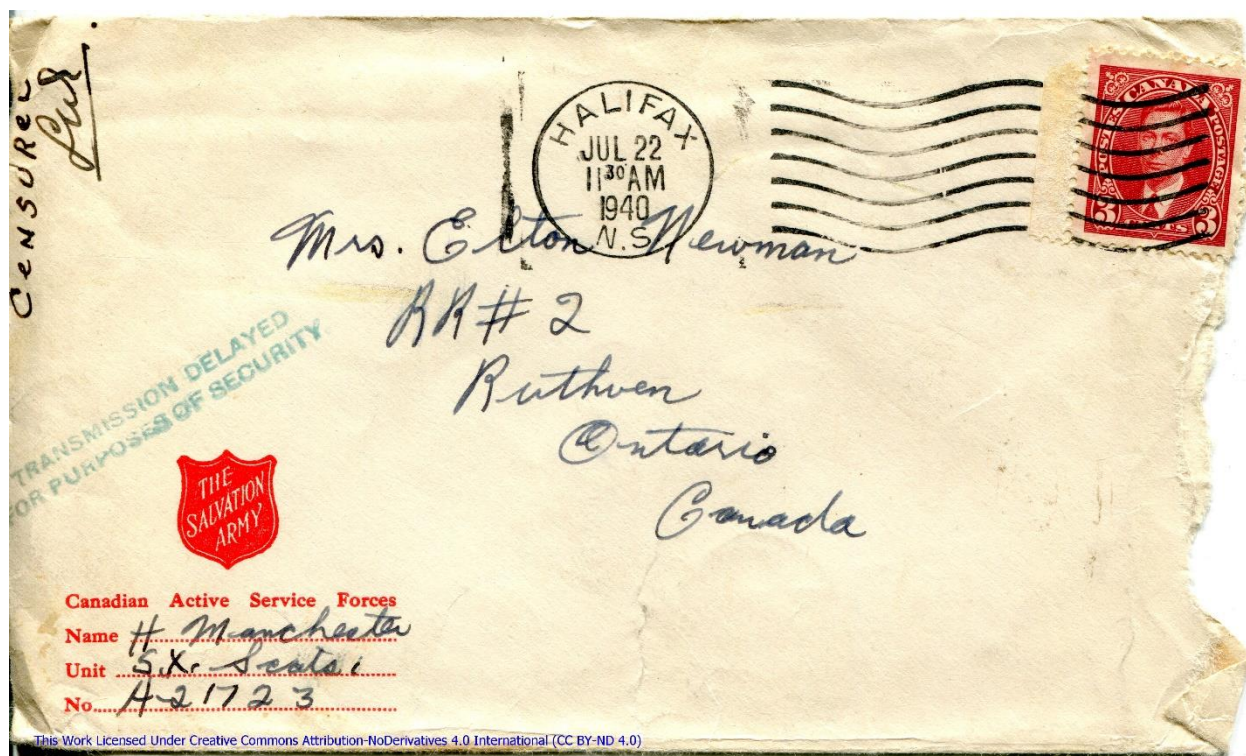 CENSURED
HALIFAX
JUL 22
11 30 AM
1940
N.S.
POSTES CANADA POSTAGE
3 CENTS 3
Mrs. Elton Newman
RR # 2
Ruthven
Ontario
Canada
TRANSMISSION DELAYED
FOR PURPOSES OF SECURITY
THE
SALVATION
ARMY
Canadian Active Service Forces
Name H Manchester
Unit S.X. Scots.
No. A-21723
This Work Licensed Under Creative Commons Attribution-NoDerivatives 4.0 International (CC BY-ND 4.0)